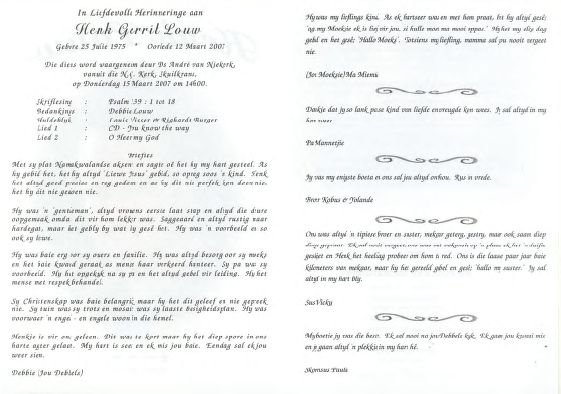 In Liefdevolle Herinneringe aan
Henk Gerrit Louw
Gebore 25 Julie 1975 * Oorlede 12 Maart 2007
Die diens word waargeneem deur Ds André van Niekerk,
vanuit die N.G. Kerk, Skuilkrans,
op Donderdag 15 Maart 2007 om 14h00.
Skriflesing : Psalm 139 : 1 tot 18
Bedankings : Debbie Louw
Huldeblyk : Louis Visser & Richardt Burger
Lied 1 : CD - You know the way
Lied 2 : O Heer my God
Briefies
Met sy plat Namakwalandse aksent en sagte oë het hy my hart gesteel. As
hy gebid het, het hy altyd 'Liewe Jesus' gebid, so opreg soos 'n kind. Henk
het altyd goed presies en reg gedoen en as hy dit nie perfek kon doen nie,
het hy dit nie gedoen nie.
Hy was 'n 'gentleman', altyd vrouens eerste laat stap en altyd die deure
oopgemaak omdat dit vir hom lekker was. Saggeaard en altyd rustig naar
hardegat, maar het gebly by wat hy gesê het. Hy was 'n voorbeeld en so
ook sy lewe.
Hy was baie erg oor sy ouers en familie. Hy was altyd besorg oor sy meeks
en het baie kwaad geraak as mense haar verkeerd hanteer. Sy pa was sy
voorbeeld. Hy het opgekyk na sy pa en het altyd gebel vir leiding. Hy het
mense met respek behandel.
Sy Christenskap was baie belangrik maar hy het dit geleef en nie gepreek
nie. Sy tuin was sy trots en mosaic was sy laaste besigheidsplan. Hy was
voorwaar 'n engel - en engele woon in die hemel.
Henkie is vir ons geleen. Dit was te kort maar hy het diep spore in ons
harte agter gelaat. My hart is seer en ek mis jou baie. Eendag sal ek jou
weer sien.
Debbie (Jou Debbels)
Hy was my lieflings kind. As ek hartseer was en met hom praat, het hy altyd gesê;
'ag my Moeksie ek is lief vir jou, jy hulle mon ma mooi oppas.' Hy het my elke dag
gebel en het gesê; 'Hallo Moeks'. Totsiens my liefling, mamma sal jou nooit vergeet
nie.
(Jou Moeksie) Ma Miemu
Dankie dat jy so lank passe kind van liefde en vreugde kon wees. Jy sal altyd in my
hart wees
Pa Mannetjie
Jy was my enigste boeta en ons sal jou altyd onthou. Rus in vrede.
Broer Kobus & Yolande
Ons was altyd 'n tipiese broer en suster, mekaar geterg, gestry, maar ook saam diep
geskiet en Henk het heeldag probeer om hom te red. Ons is die laaste paar jaar baie
kilometers van mekaar, maar hy het gereeld gebel en gesê; 'hallo my suster.' Jy sal
altyd in my hart bly.
Sus Vicky
My boetie jy was die beste. Ek sal mooi na jou Debbels kyk. Ek gaan jou vreeslik mis
en jy gaan altyd 'n plekkie in my hart hê.
Skonsus Paula